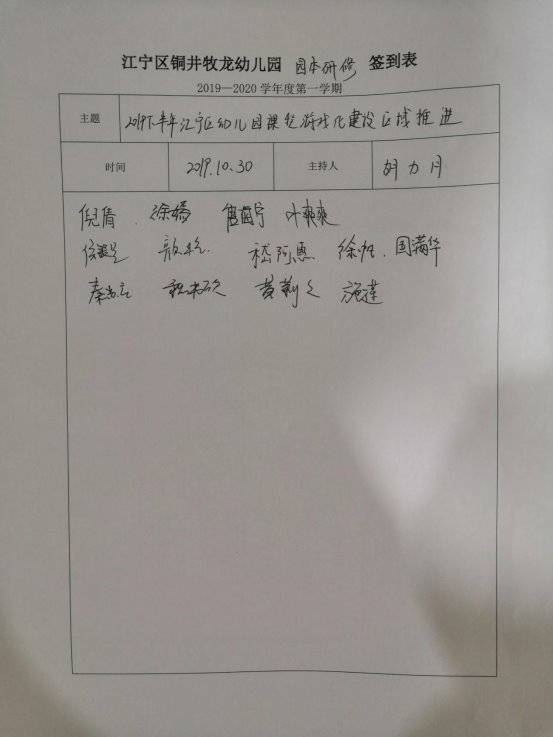 江宁区铜井牧龙幼儿园 园本研修 签到表
2019—2020学年度第一学期
主题 2019下半年江宁区幼儿园课程游戏化建设区域推进
时间 2019.10.30 主持人 胡力月
倪倩 徐婧 叶爽爽
嵇阿恩 徐
黄莉 施莲